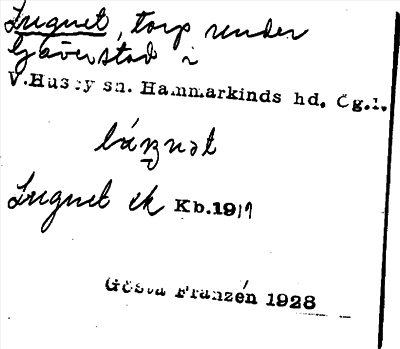 Lugnet, torp under
Gäverstad i
V.Husby sn. Hammarkinds hd. Ög.l.
Lugnet ek Kb.1917
Gösta Franzén 1928